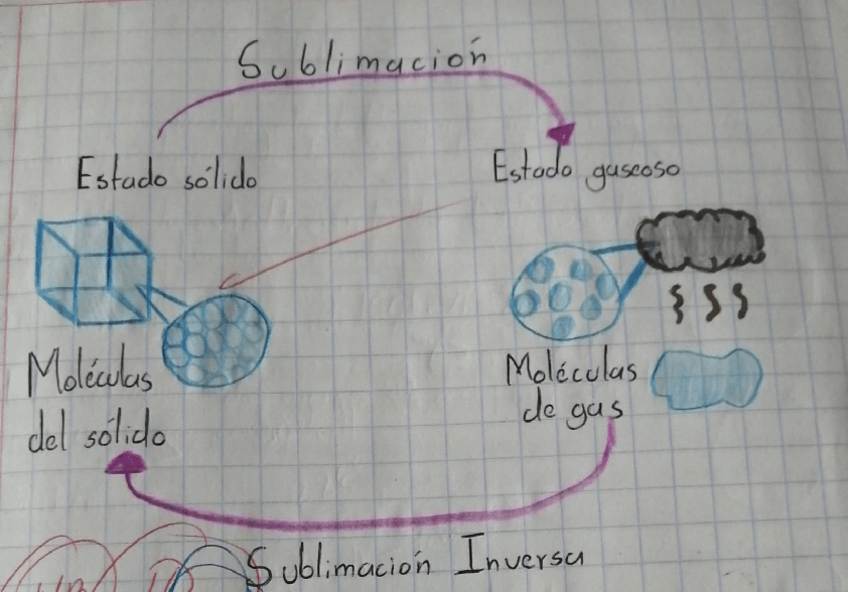 Sublimación
Estado sólido
Estado gaseoso
Moléculas
del sólido
Moléculas
de gas
Sublimación Inversa